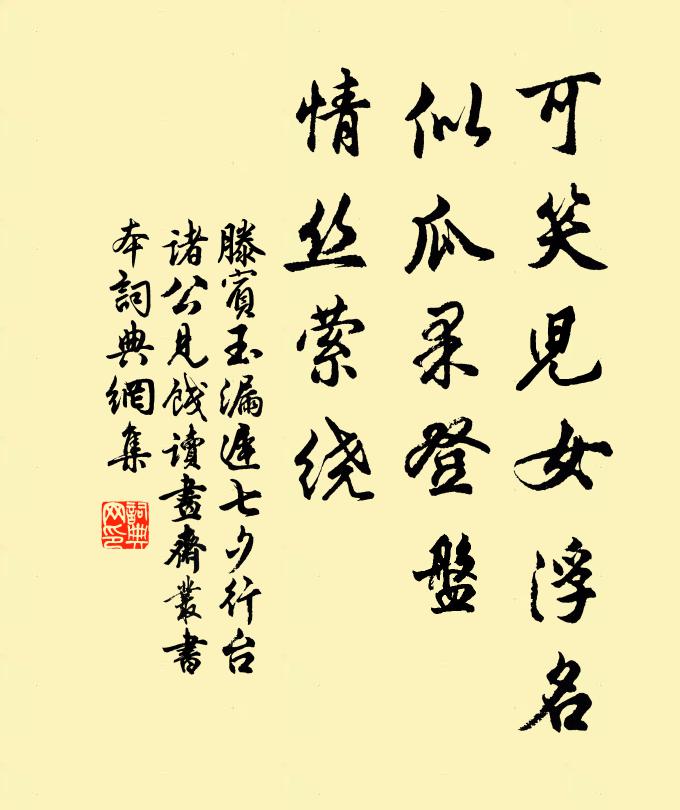 可笑児女浮名
似瓜果登盤
情丝萦绕
滕賓玉漏遲七夕行台
諸公見餞讀畫齋叢書
本詞典網集
詞典网印